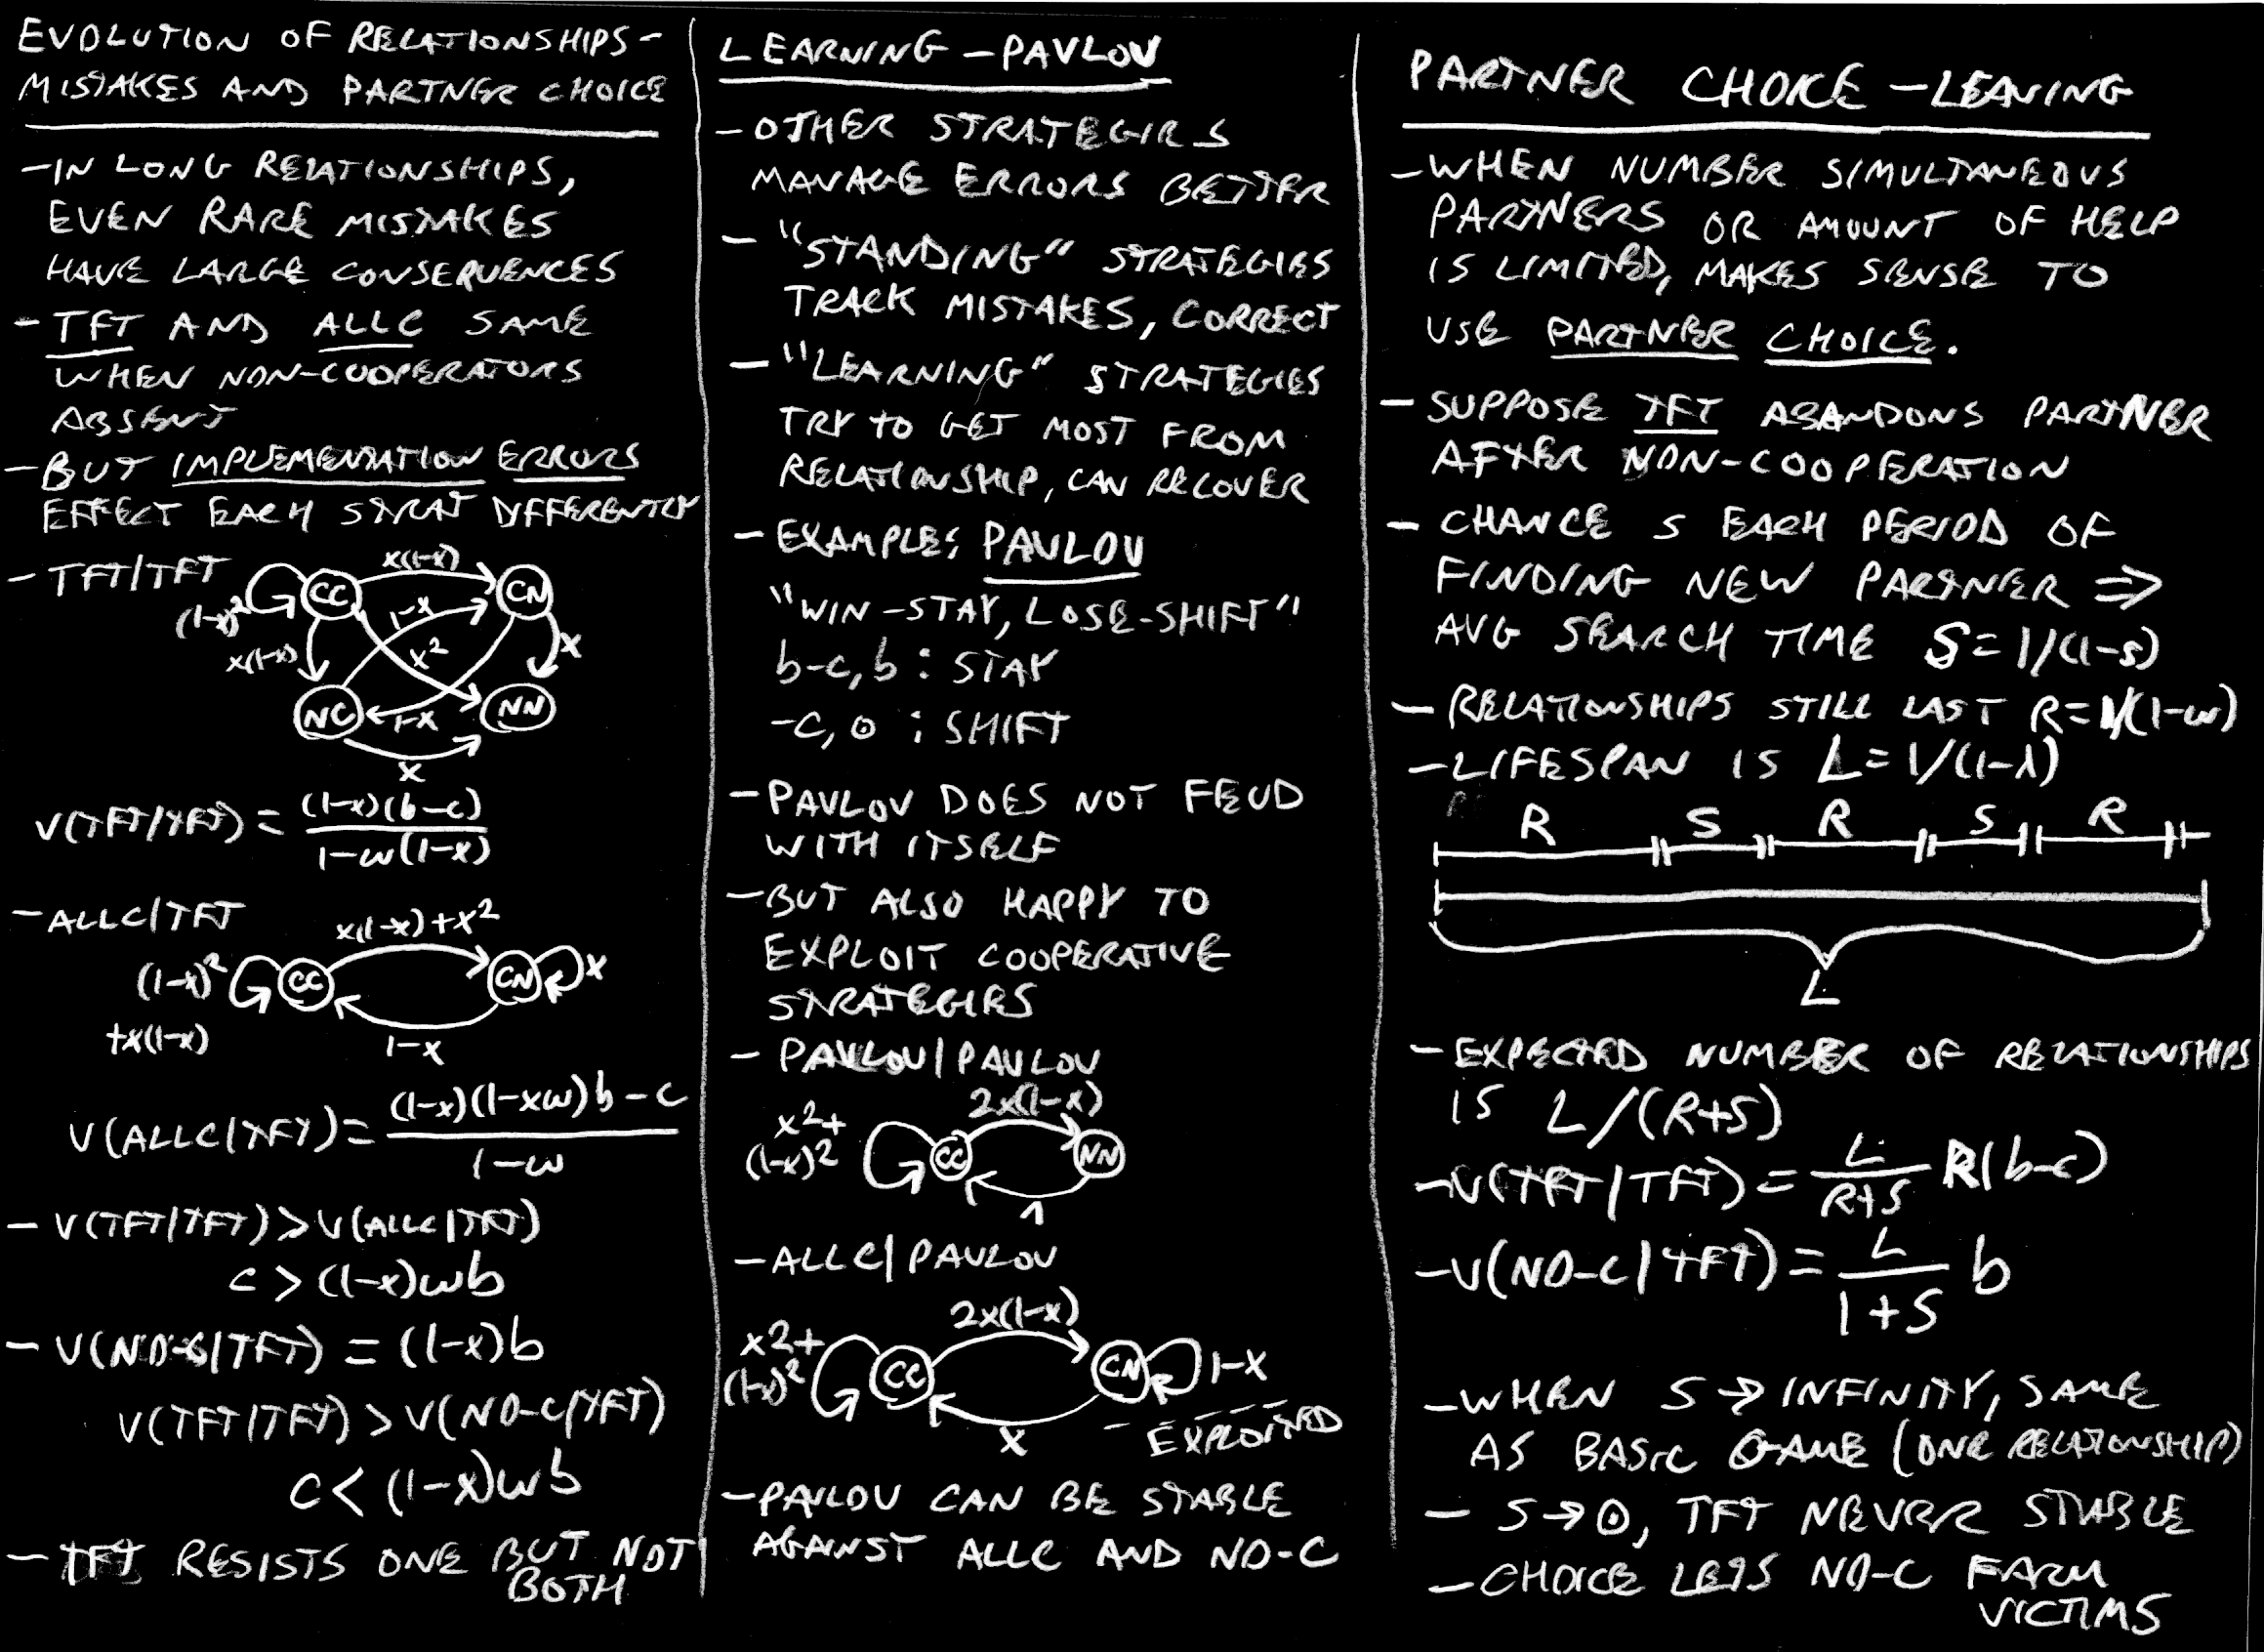 EVOLUTION OF RELATIONSHIPS -
MISTAKES AND PARTNER CHOICE
- IN LONG RELATIONSHIPS,
EVEN RARE MISTAKES
HAVE LARGE CONSEQUENCES
- TFT AND ALLC SAME
WHEN NON-COOPERATORS
ABSENT
- BUT IMPLEMENTATION ERRORS
EFFECT EACH STRAT DIFFERENTLY
- TFT|TFT
x(1-x)
CC
CN
(1-x)²
1-x
x(1-x)
x²
x
NC
1-x
NN
x
V(TFT|TFT) = (1-x)(b-c) / 1-w(1-x)
- ALLC|TFT
x(1-x)+x²
(1-x)²
CC
CN
x
+x(1-x)
1-x
V(ALLC|TFT) = (1-x)(1-xw)b-c / 1-w
- V(TFT|TFT) > V(ALLC|TFT)
c > (1-x)wb
- V(NO-C|TFT) = (1-x)b
V(TFT|TFT) > V(NO-C|TFT)
c < (1-x)wb
- TFT RESISTS ONE BUT NOT
BOTH
LEARNING - PAVLOV
- OTHER STRATEGIES
MANAGE ERRORS BETTER
- "STANDING" STRATEGIES
TRACK MISTAKES, CORRECT
- "LEARNING" STRATEGIES
TRY TO GET MOST FROM
RELATIONSHIP, CAN RECOVER
- EXAMPLE: PAVLOV
"WIN-STAY, LOSE-SHIFT"
b-c, b : STAY
-c, 0 : SHIFT
- PAVLOV DOES NOT FEUD
WITH ITSELF
- BUT ALSO HAPPY TO
EXPLOIT COOPERATIVE
STRATEGIES
- PAVLOV|PAVLOV
x²+
2x(1-x)
(1-x)²
CC
NN
1
- ALLC|PAVLOV
2x(1-x)
x²+
(1-x)²
CC
CN
1-x
x
- EXPLOITED
- PAVLOV CAN BE STABLE
AGAINST ALLC AND NO-C
PARTNER CHOICE - LEAVING
- WHEN NUMBER SIMULTANEOUS
PARTNERS OR AMOUNT OF HELP
IS LIMITED, MAKES SENSE TO
USE PARTNER CHOICE.
- SUPPOSE TFT ABANDONS PARTNER
AFTER NON-COOPERATION
- CHANCE s EACH PERIOD OF
FINDING NEW PARTNER ⇒
AVG SEARCH TIME S = 1/(1-s)
- RELATIONSHIPS STILL LAST R = 1/(1-w)
- LIFESPAN IS L = 1/(1-λ)
R S R S R
L
- EXPECTED NUMBER OF RELATIONSHIPS
IS L/(R+S)
- V(TFT|TFT) = L / R+S R(b-c)
- V(NO-C|TFT) = L / 1+S b
- WHEN S → INFINITY, SAME
AS BASIC GAME (ONE RELATIONSHIP)
- S → 0, TFT NEVER STABLE
- CHOICE LETS NO-C FARM
VICTIMS